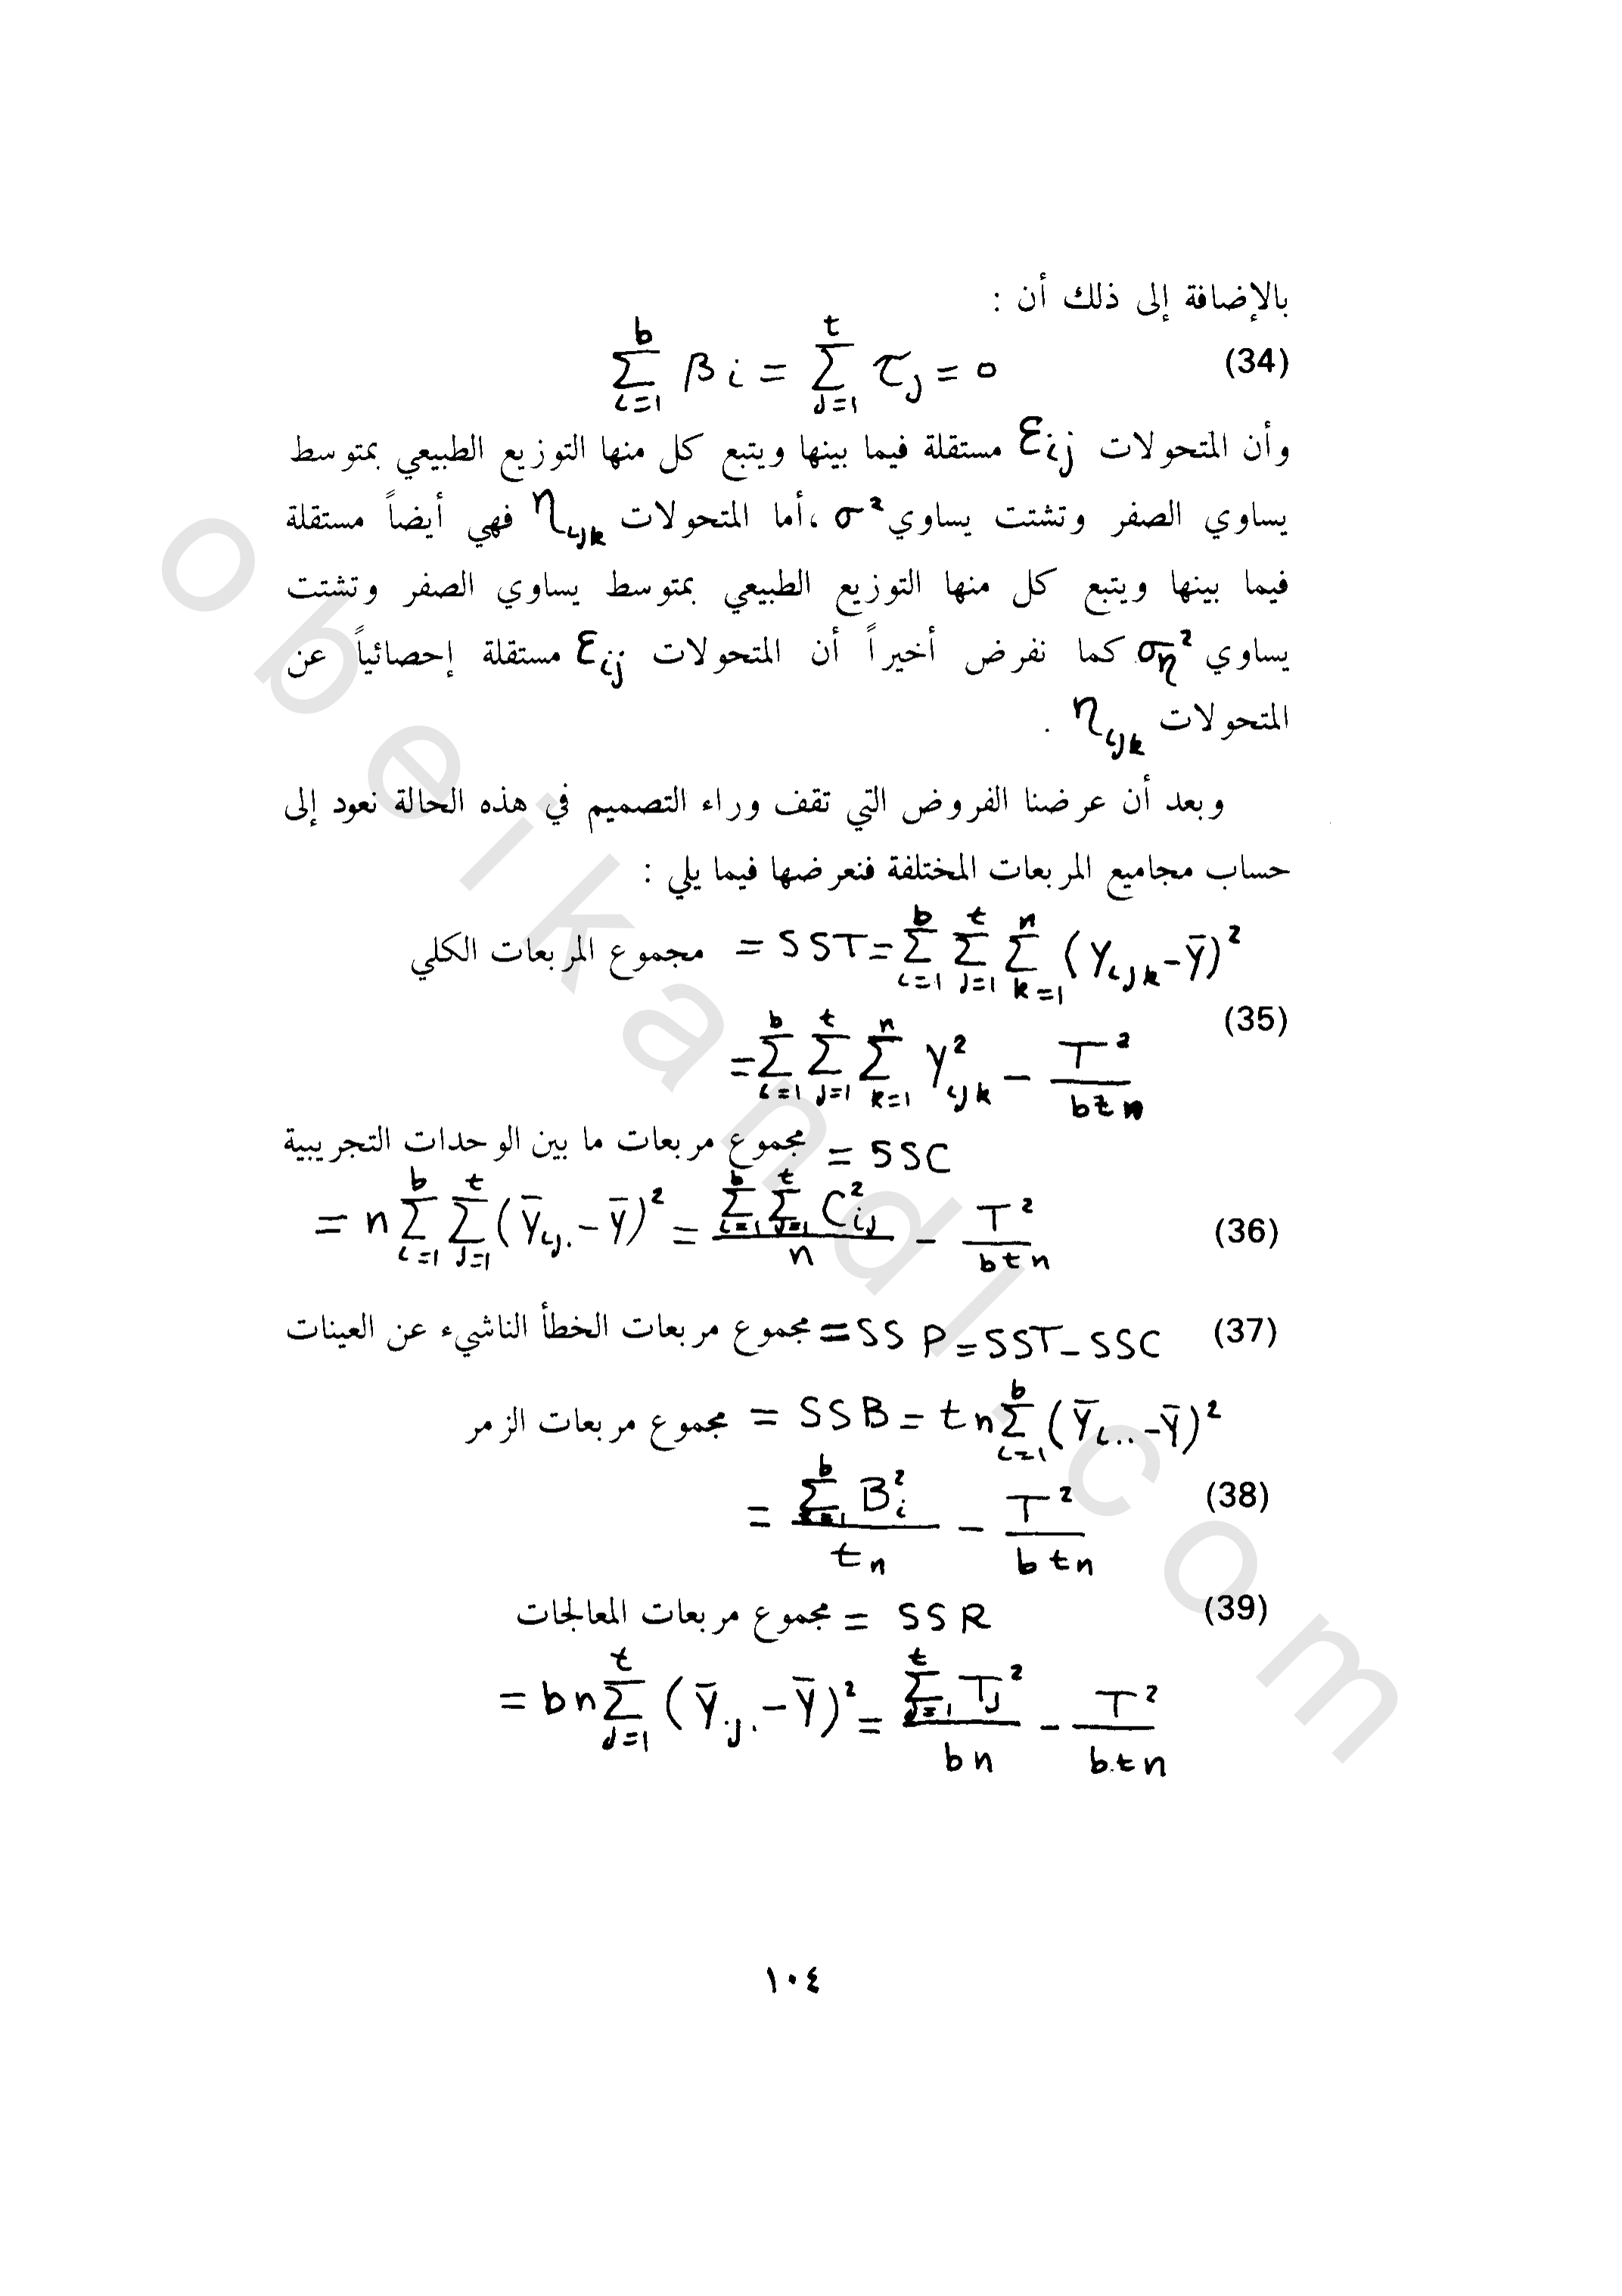 بالإضافة إلى ذلك أن :
(34) $\sum_{i=1}^{b} \beta i = \sum_{j=1}^{t} \tau_j = 0$
وأن المتحولات $\varepsilon_{ij}$ مستقلة فيما بينها ويتبع كل منها التوزيع الطبيعي بمتوسط
يساوي الصفر وتشتت يساوي $\sigma^2$ ،أما المتحولات $\eta_{ijk}$ فهي أيضاً مستقلة
فيما بينها ويتبع كل منها التوزيع الطبيعي بمتوسط يساوي الصفر وتشتت
يساوي $\sigma_\eta^2$ كما نفرض أخيراً أن المتحولات $\varepsilon_{ij}$ مستقلة إحصائياً عن
المتحولات $\eta_{ijk}$ .
وبعد أن عرضنا الفروض التي تقف وراء التصميم في هذه الحالة نعود إلى
حساب مجاميع المربعات المختلفة فنعرضها فيما يلي :
مجموع المربعات الكلي $= SST = \sum_{i=1}^{b} \sum_{j=1}^{t} \sum_{k=1}^{n} (Y_{ijk} - \bar{Y})^2$
(35)
$= \sum_{i=1}^{b} \sum_{j=1}^{t} \sum_{k=1}^{n} Y_{ijk}^2 - \frac{T^2}{btn}$
مجموع مربعات ما بين الوحدات التجريبية $= SSC$
$= n \sum_{i=1}^{b} \sum_{j=1}^{t} (\bar{Y}_{ij.} - \bar{Y})^2 = \frac{\sum_{i=1}^{b} \sum_{j=1}^{t} C_{ij}^2}{n} - \frac{T^2}{btn}$ (36)
مجموع مربعات الخطأ الناشيء عن العينات $= SSP = SST - SSC$ (37)
مجموع مربعات الزمر $= SSB = tn \sum_{i=1}^{b} (\bar{Y}_{i..} - \bar{Y})^2$
$= \frac{\sum_{i=1}^{b} B_i^2}{tn} - \frac{T^2}{btn}$ (38)
مجموع مربعات المعالجات $= SSR$ (39)
$= bn \sum_{j=1}^{t} (\bar{Y}_{.j.} - \bar{Y})^2 = \frac{\sum_{j=1}^{t} T_j^2}{bn} - \frac{T^2}{btn}$
١٠٤
obeikandl.com